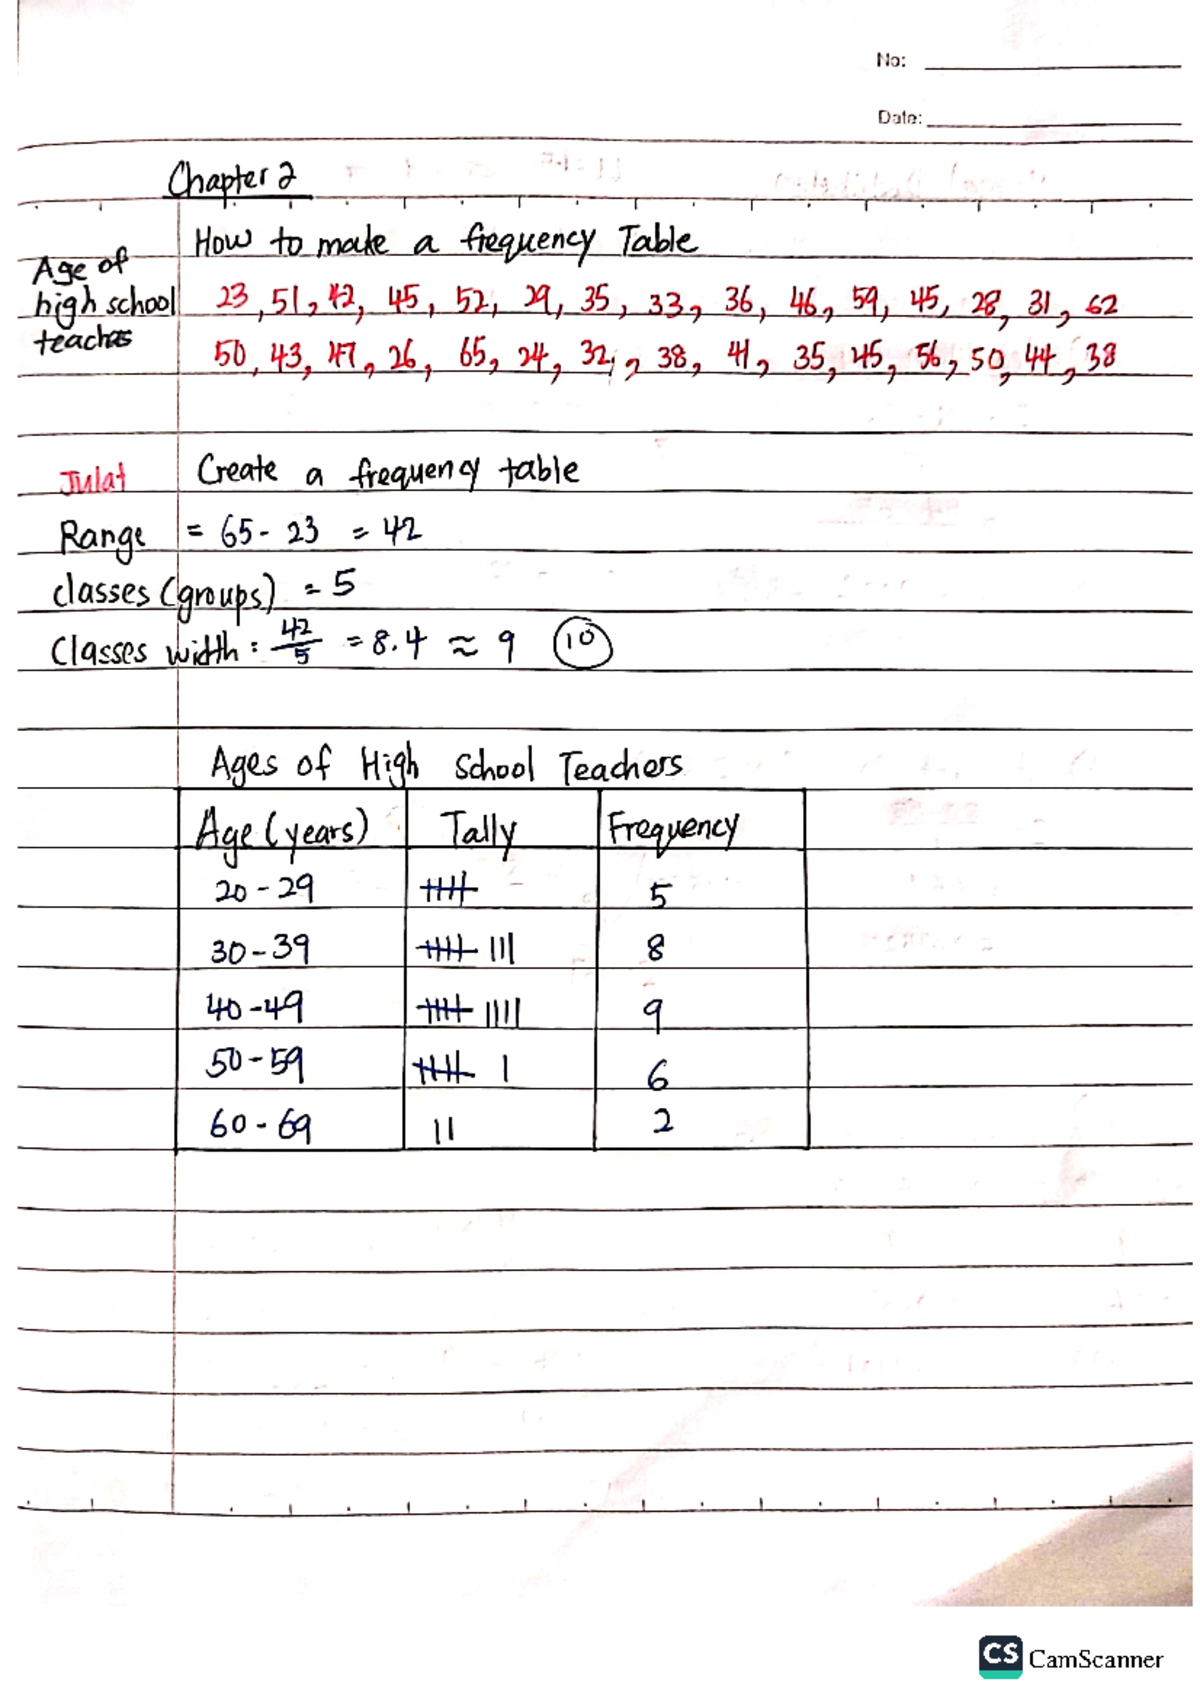 No:
Date:
Chapter 2
How to make a frequency Table
Age of high school teachers
23, 51, 42, 45, 52, 29, 35, 33, 36, 46, 59, 45, 28, 31, 62
50, 43, 47, 26, 65, 24, 32, 38, 41, 35, 45, 56, 50, 44, 38
Julat
Create a frequency table
Range = 65 - 23 = 42
classes (groups) = 5
Classes width: 42/5 = 8.4 ≈ 9 10
Ages of High School Teachers
Age (years) Tally Frequency
20 - 29 𝍸 5
30 - 39 𝍸 ||| 8
40 - 49 𝍸 |||| 9
50 - 59 𝍸 | 6
60 - 69 || 2
CS CamScanner